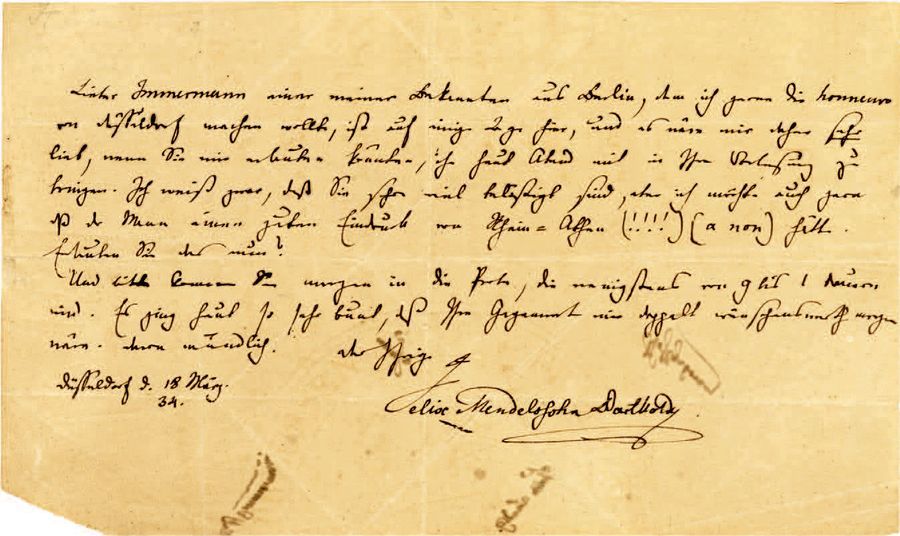 Lieber Immermann einer meiner Bekannten aus Berlin, dem ich gerne die honneurs
von Düsseldorf machen wollte, ist auf einige Tage hier, und es wäre mir daher sehr
lieb, wenn Sie mir erlauben könnten, ihn heut Abend mit in Ihre Vorlesung zu
bringen. Ich weiß zwar, daß Sie schon viel belästigt sind, aber ich möchte auch gern
daß der Mann einen guten Eindruck von Rhein=Athen (!!!!) (a non) hätte.
Erlauben Sie das nun?
Und bitte kommen Sie morgen in die Probe, die wenigstens von 9 bis 1 dauern
wird. Es ging heut so sehr bunt, daß Ihre Gegenwart mir doppelt wünschenswerth morgen
wäre. mündlich. der Ihrige
Düsseldorf d. 18 März.
34.
Felix Mendelssohn Bartholdy